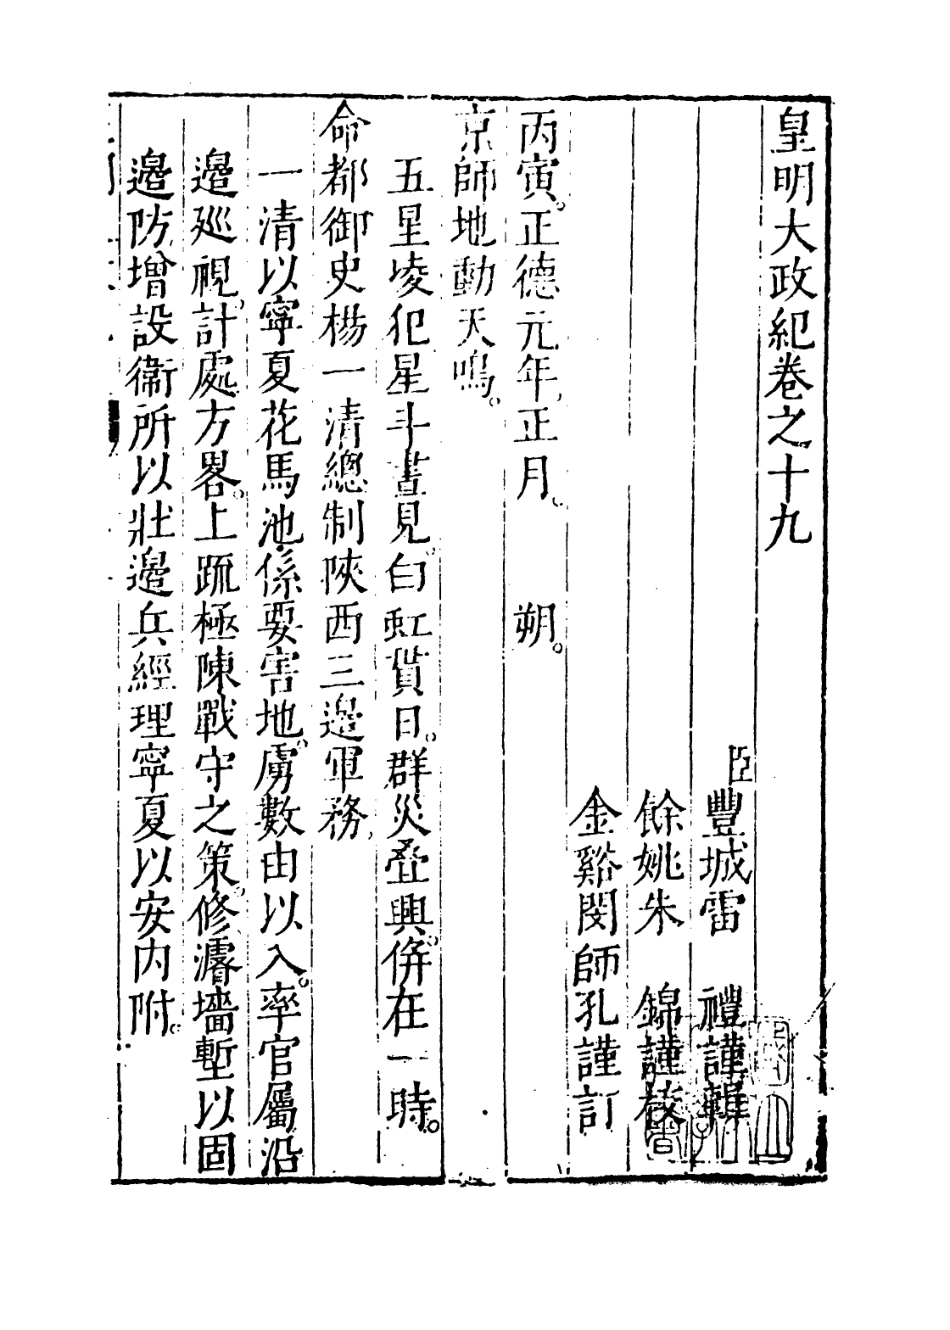 皇明大政紀卷之十九
臣豐城雷　禮謹輯
餘姚朱　錦謹校
金谿閔師孔謹訂
丙寅。正德元年。正月。　朔。
京師地動天鳴。
五星凌犯星斗晝見。白虹貫日。群災疊興。併在一時。
命都御史楊一清總制陝西三邊軍務
一清以寧夏花馬池係要害地。虜數由以入。率官屬沿
邊廵視。計處方畧。上疏極陳戰守之策。修濬墻塹以固
邊防。增設衞所以壯邊兵。經理寧夏以安內附。